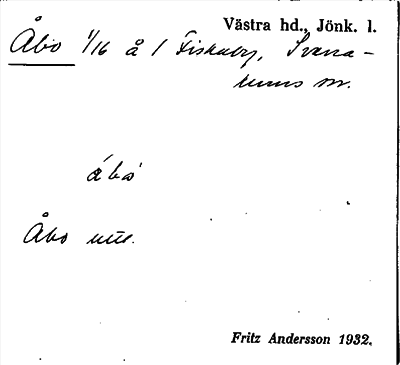 Västra hd., Jönk. l.
Åbo 1/16 å 1 Fiskeby, Svena-
rums sn.
åbo
Åbo
Fritz Andersson 1932.